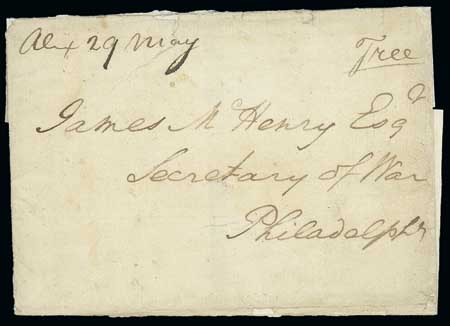 Alex 29 May
Free
James McHenry Esqr
Secretary of War
Philadelpha